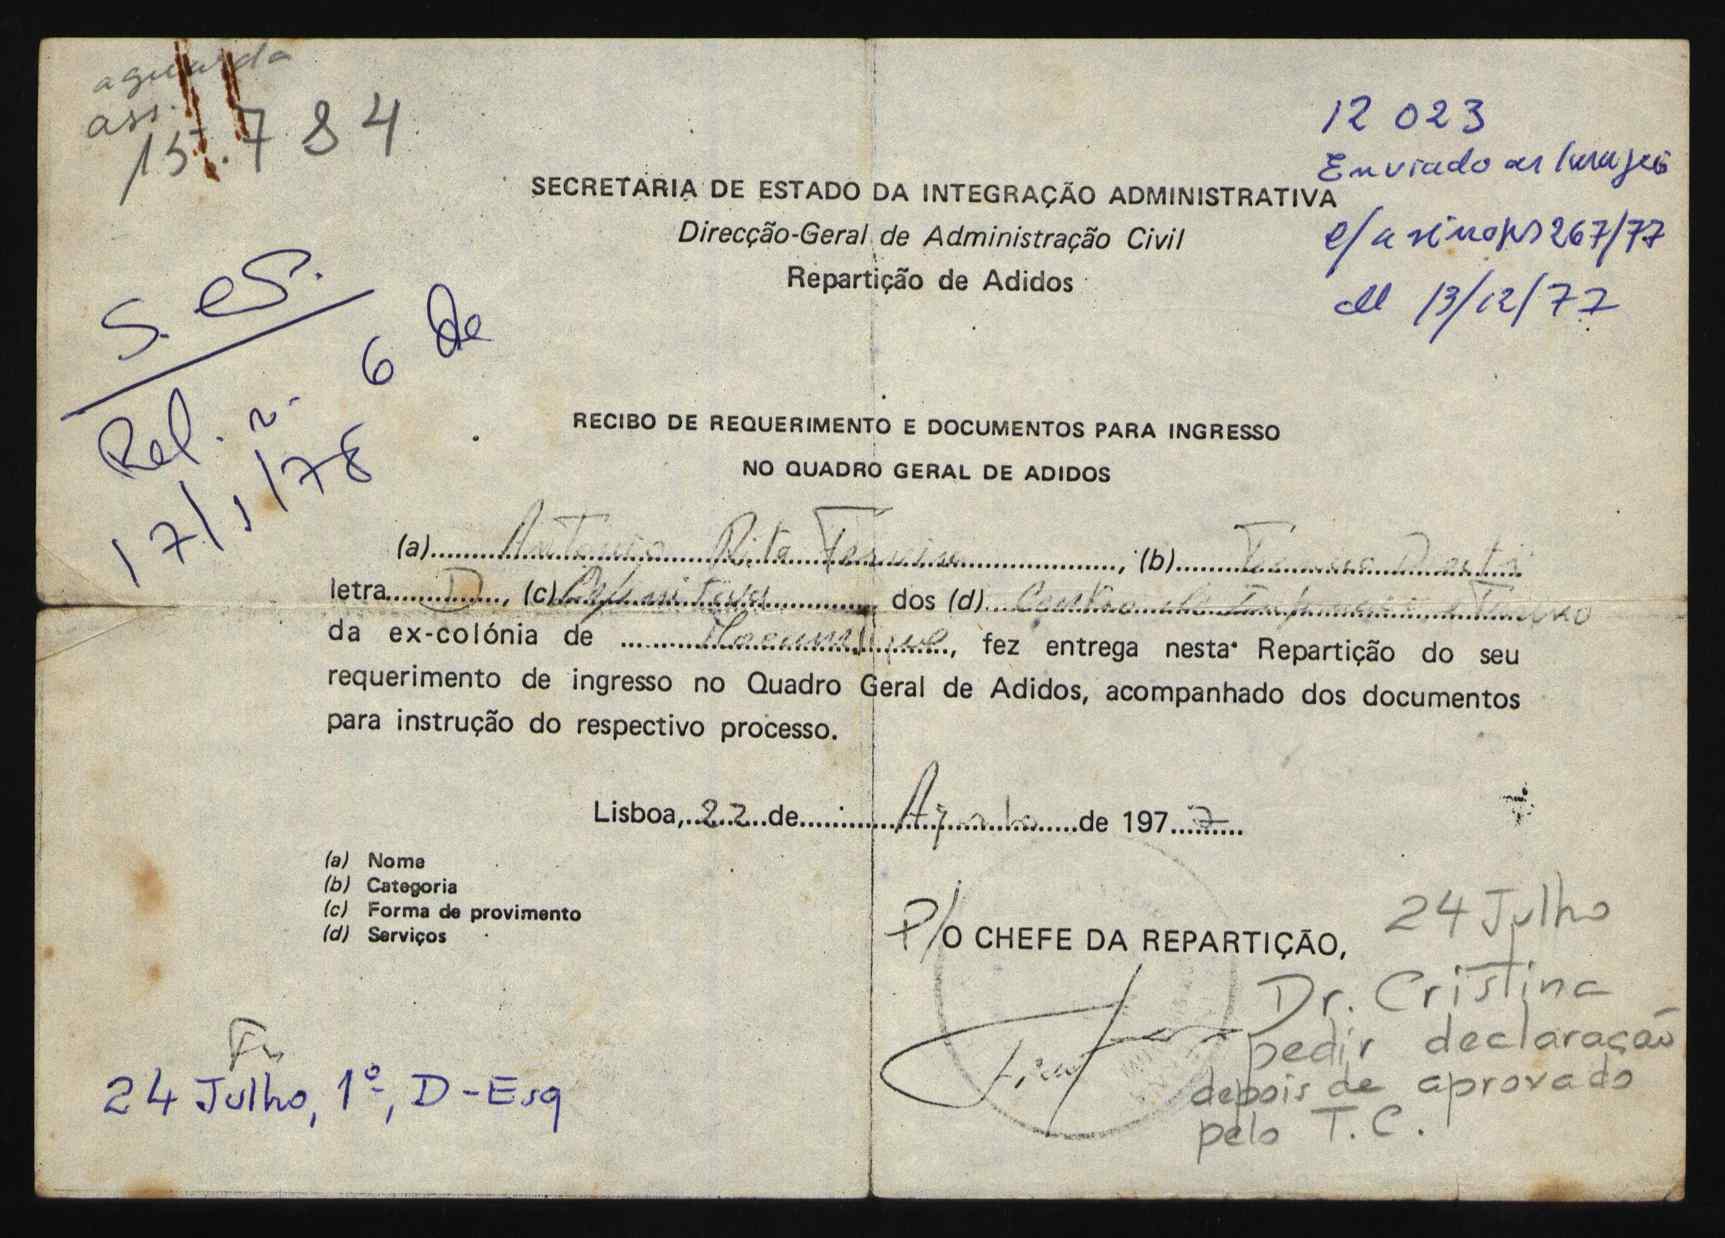 aguarda
ass.
15.784
12 023
Enviado
267/77
13/12/77
SECRETARIA DE ESTADO DA INTEGRAÇÃO ADMINISTRATIVA
Direcção-Geral de Administração Civil
Repartição de Adidos
S. eS.
Rel. n. 6 de
17/1/78
RECIBO DE REQUERIMENTO E DOCUMENTOS PARA INGRESSO
NO QUADRO GERAL DE ADIDOS
(a) António Rita Ferreira, (b)
letra D, (c) dos (d) Centro de Turismo
da ex-colónia de Moçambique, fez entrega nesta Repartição do seu
requerimento de ingresso no Quadro Geral de Adidos, acompanhado dos documentos
para instrução do respectivo processo.
Lisboa, 22 de Agosto de 1977
(a) Nome
(b) Categoria
(c) Forma de provimento
(d) Serviços
P/O CHEFE DA REPARTIÇÃO,
24 Julho
Dr. Cristina
pedir declaração
depois de aprovado
pelo T.C.
24 Julho, 1º, D-Esq